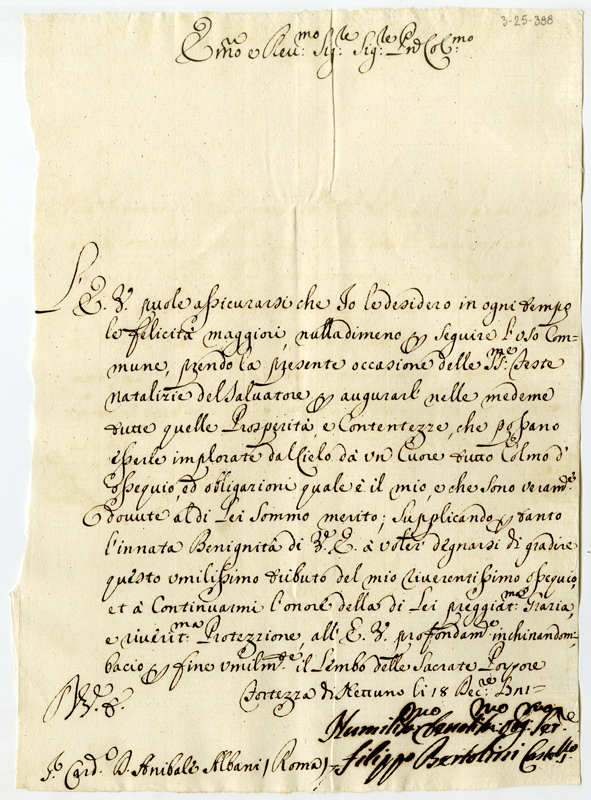 3-25-388
Em͞o e Reu:mo Sig:re Sig:re Pn͞ Colmo
L'E. V. puole assicurarsi che Io le desidero in ogni tempo
le felicità maggiori, nulladimeno p seguire l'uso Com=
mune, prendo la presente occasione delle SS:me Feste
natalizie del Salvatore p augurarle nelle medeme
tutte quelle Prosperità, e Contentezze, che possano
esserle implorate dal Cielo da vn Cuore tutto Colmo d'
ossequio, ed obligazioni quale è il mio, e che sono veramte
dovute al di Lei Sommo merito; Supplicando p tanto
l'innata Benignità di V. E. à voler degnarsi di gradire
questo vmilissimo tributo del mio riverentissimo ossequio,
et à Continuarmi l'onore della di Lei preggiat:ma Grazia,
e riverit:ma Protezzione, all'E. V. profondamte inchinandomi
bacio p fine vmilmte il Lembo delle Sacrate Porpore
Fortezza di Nettuno li 18 Dec:re
Humilissmo Filippo Bertolini Castellno
Sr. Card. D. Anibale Albani (Roma)